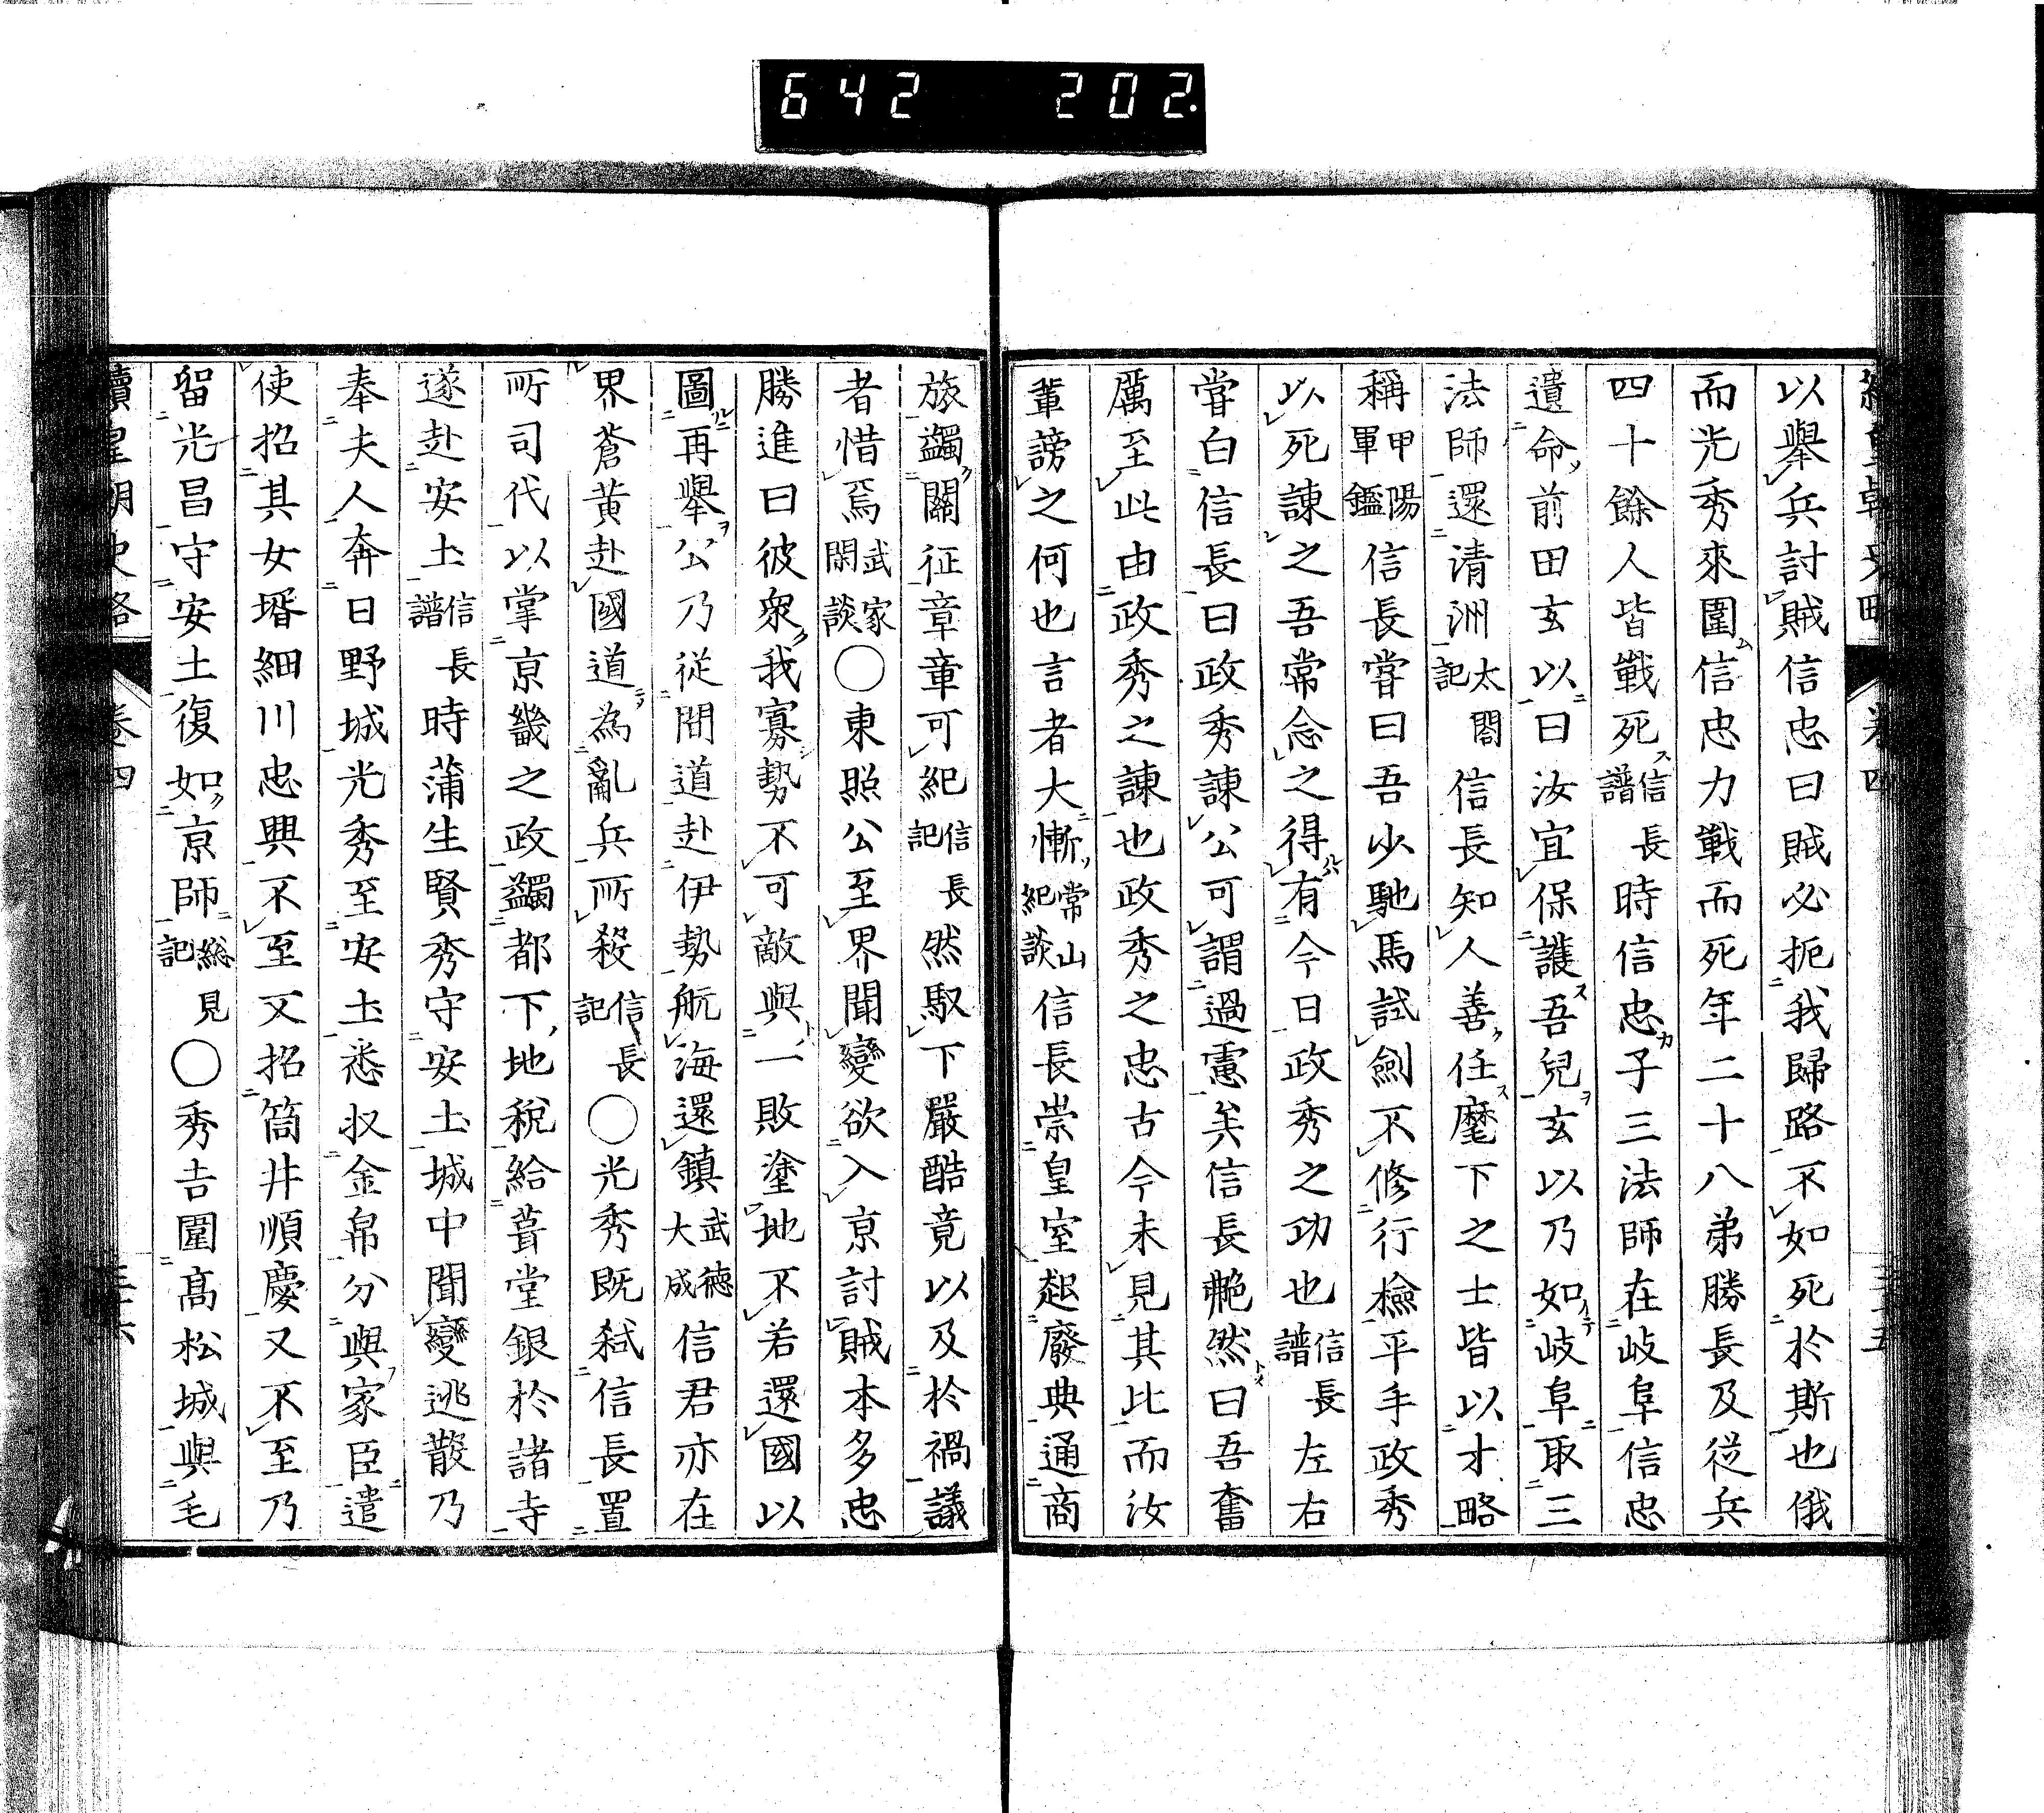 642 202.
以舉兵討賊信忠曰賊必扼我歸路不如死於斯也俄
而光秀來圍信忠力戰而死年二十八弟勝長及從兵
四十餘人皆戰死信長譜時信忠子三法師在岐阜信忠
遺命前田玄以曰汝宜保護吾兒玄以乃如岐阜取三
法師還清洲太閤記信長知人善任麾下之士皆以才略
稱甲陽軍鑑信長嘗曰吾少馳馬試劍不修行檢平手政秀
以死諫之吾常念之得有今日政秀之功也信長譜左右
嘗白信長曰政秀諫公可謂過慮矣信長艴然曰吾奮
厲至此由政秀之諫也政秀之忠古今未見其比而汝
輩謗之何也言者大慚常山紀談信長崇皇室起廢典通商
旅蠲關征章章可紀信長記然馭下嚴酷竟以及於禍議
者惜焉武家閑談〇東照公至界聞變欲入京討賊本多忠
勝進曰彼眾我寡勢不可敵與一敗塗地不若還國以
圖再舉公乃從間道赴伊勢航海還鎮武德大成信君亦在
界蒼黃赴國道為亂兵所殺信長記〇光秀既弒信長置
所司代以掌京畿之政蠲都下地稅給葺堂銀於諸寺
遂赴安土信長譜時蒲生賢秀守安土城中聞變逃散乃
奉夫人奔日野城光秀至安土悉収金帛分與家臣遣
使招其女壻細川忠興不至又招筒井順慶又不至乃
留光昌守安土復如京師總見記〇秀吉圍髙松城與毛
續皇朝史略 卷四